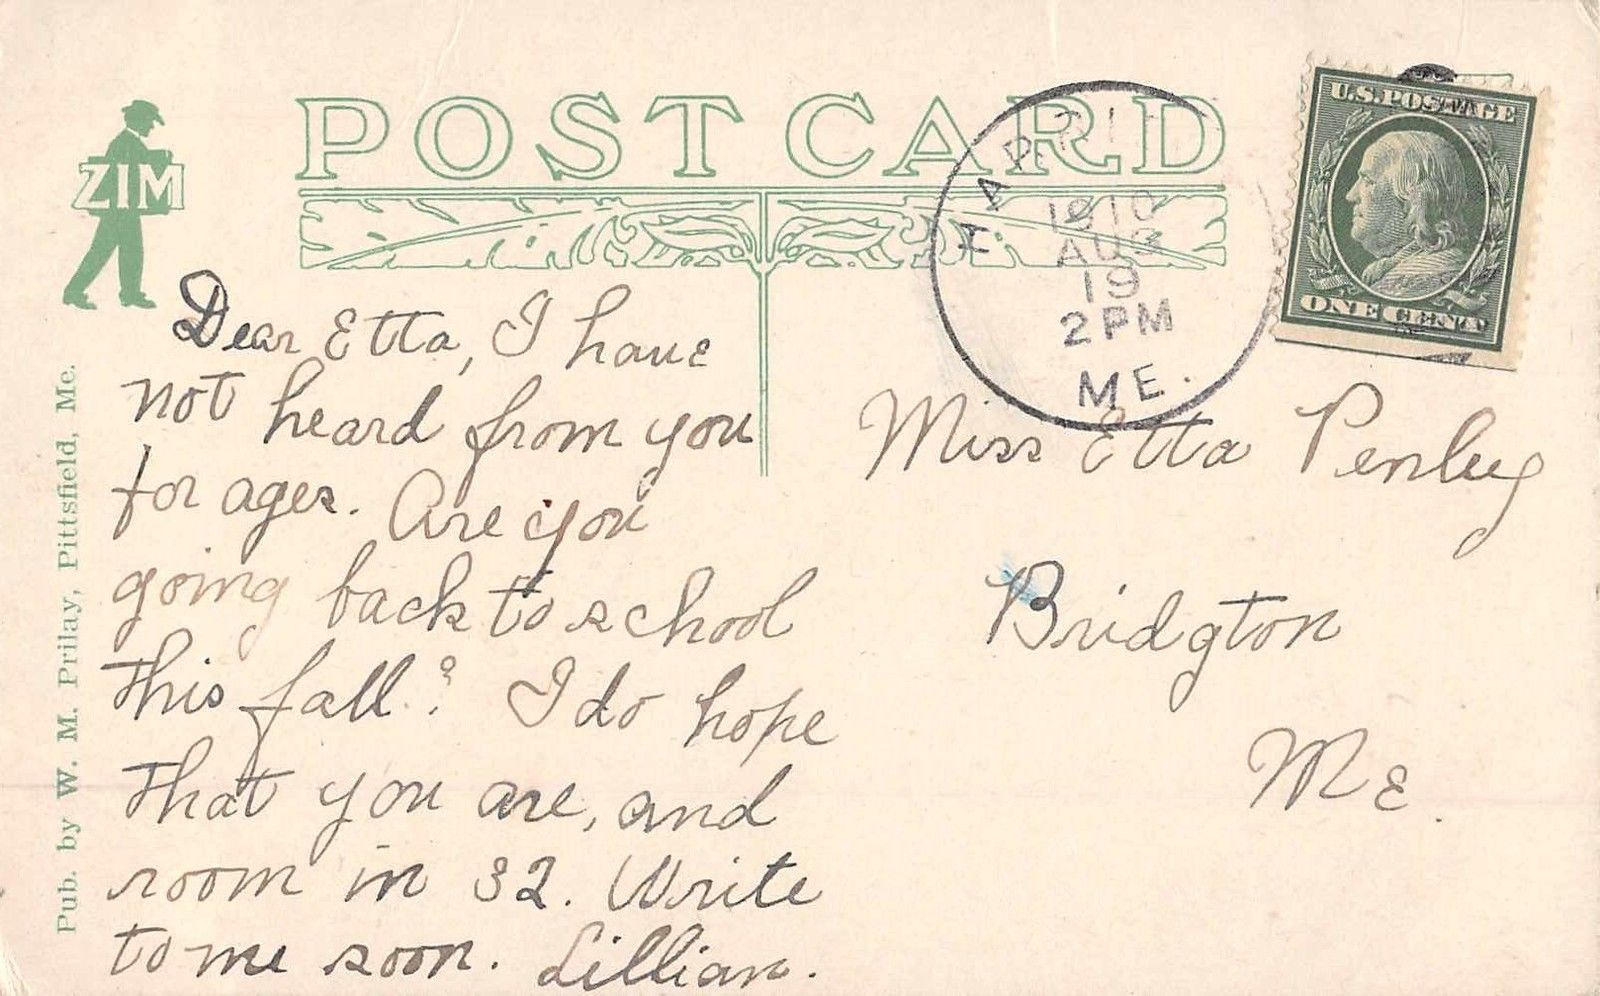 POST CARD
ZIM
1910
AUG
19
2 PM
ME.
U.S. POSTAGE
ONE CENT
Dear Etta, I have
not heard from you
for ages. Are you
going back to school
this fall? I do hope
that you are, and
room in 32. Write
to me soon. Lillian.
Miss Etta Penley
Bridgton
Me.
Pub. by W. M. Prilay, Pittsfield, Me.